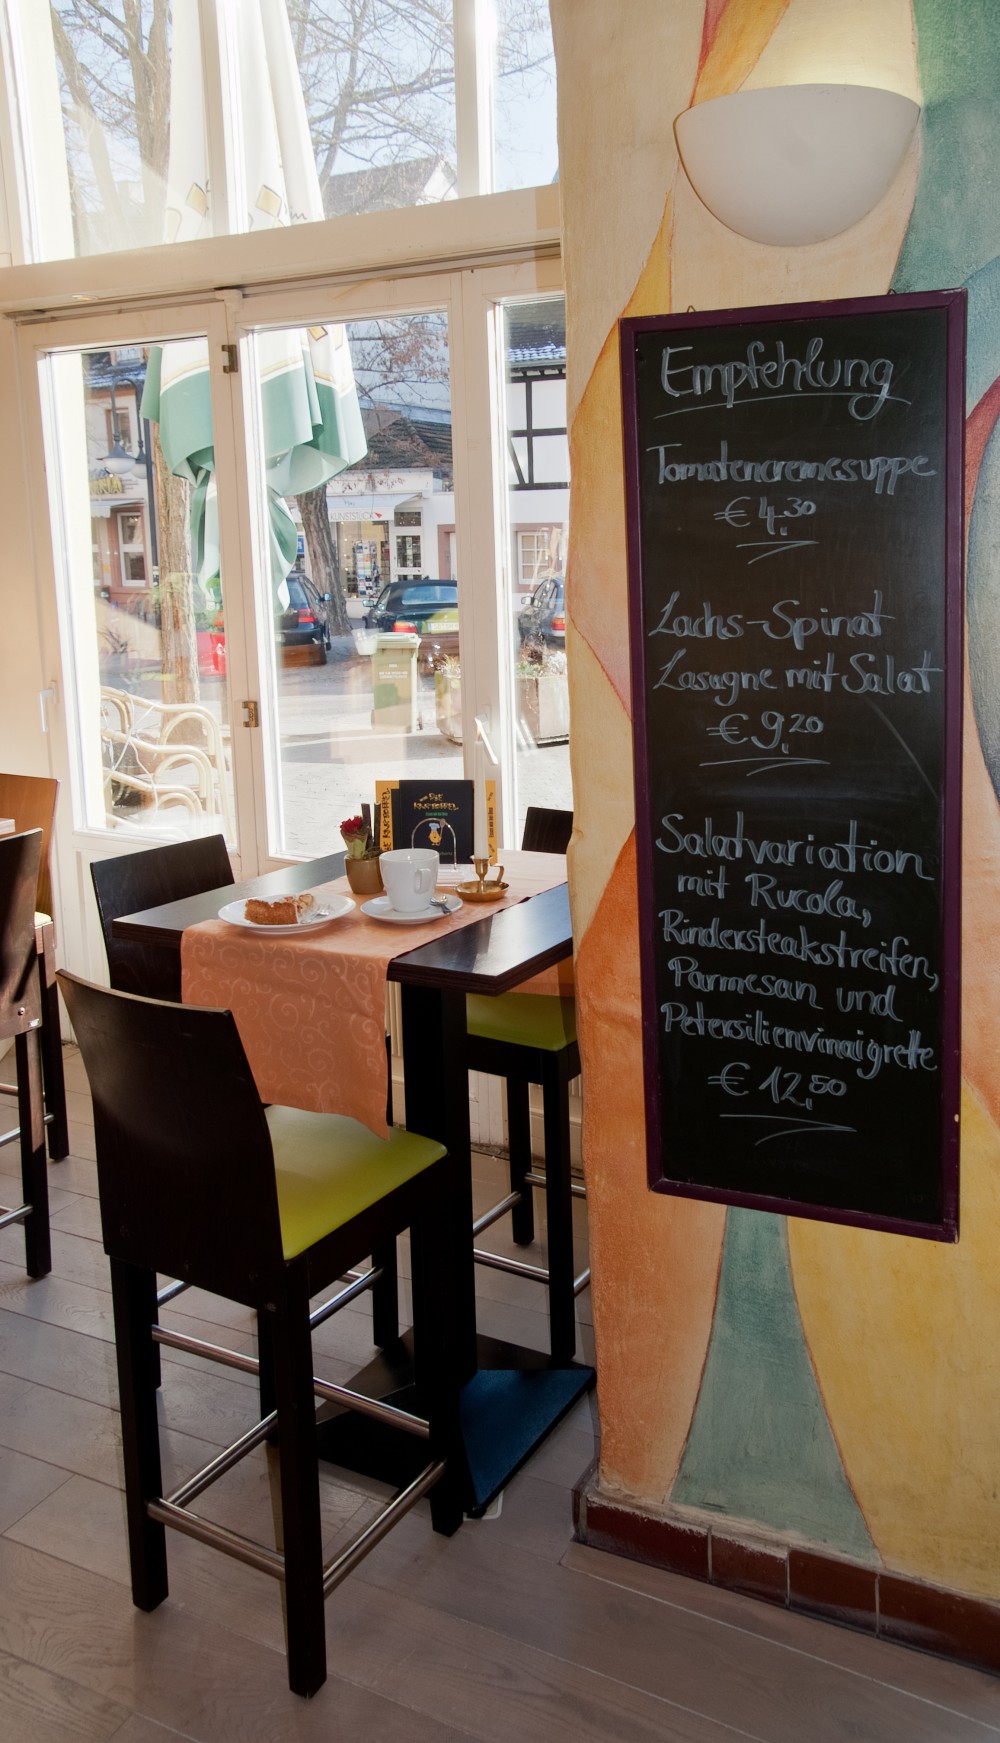 Empfehlung
Tomatencremesuppe
€ 4.30
Lachs-Spinat
Lasagne mit Salat
€ 9,20
Salatvariation
mit Rucola,
Rindersteakstreifen,
Parmesan und
Petersilienvinaigrette
€ 12,50
KUNSTSTÜCK
DIE